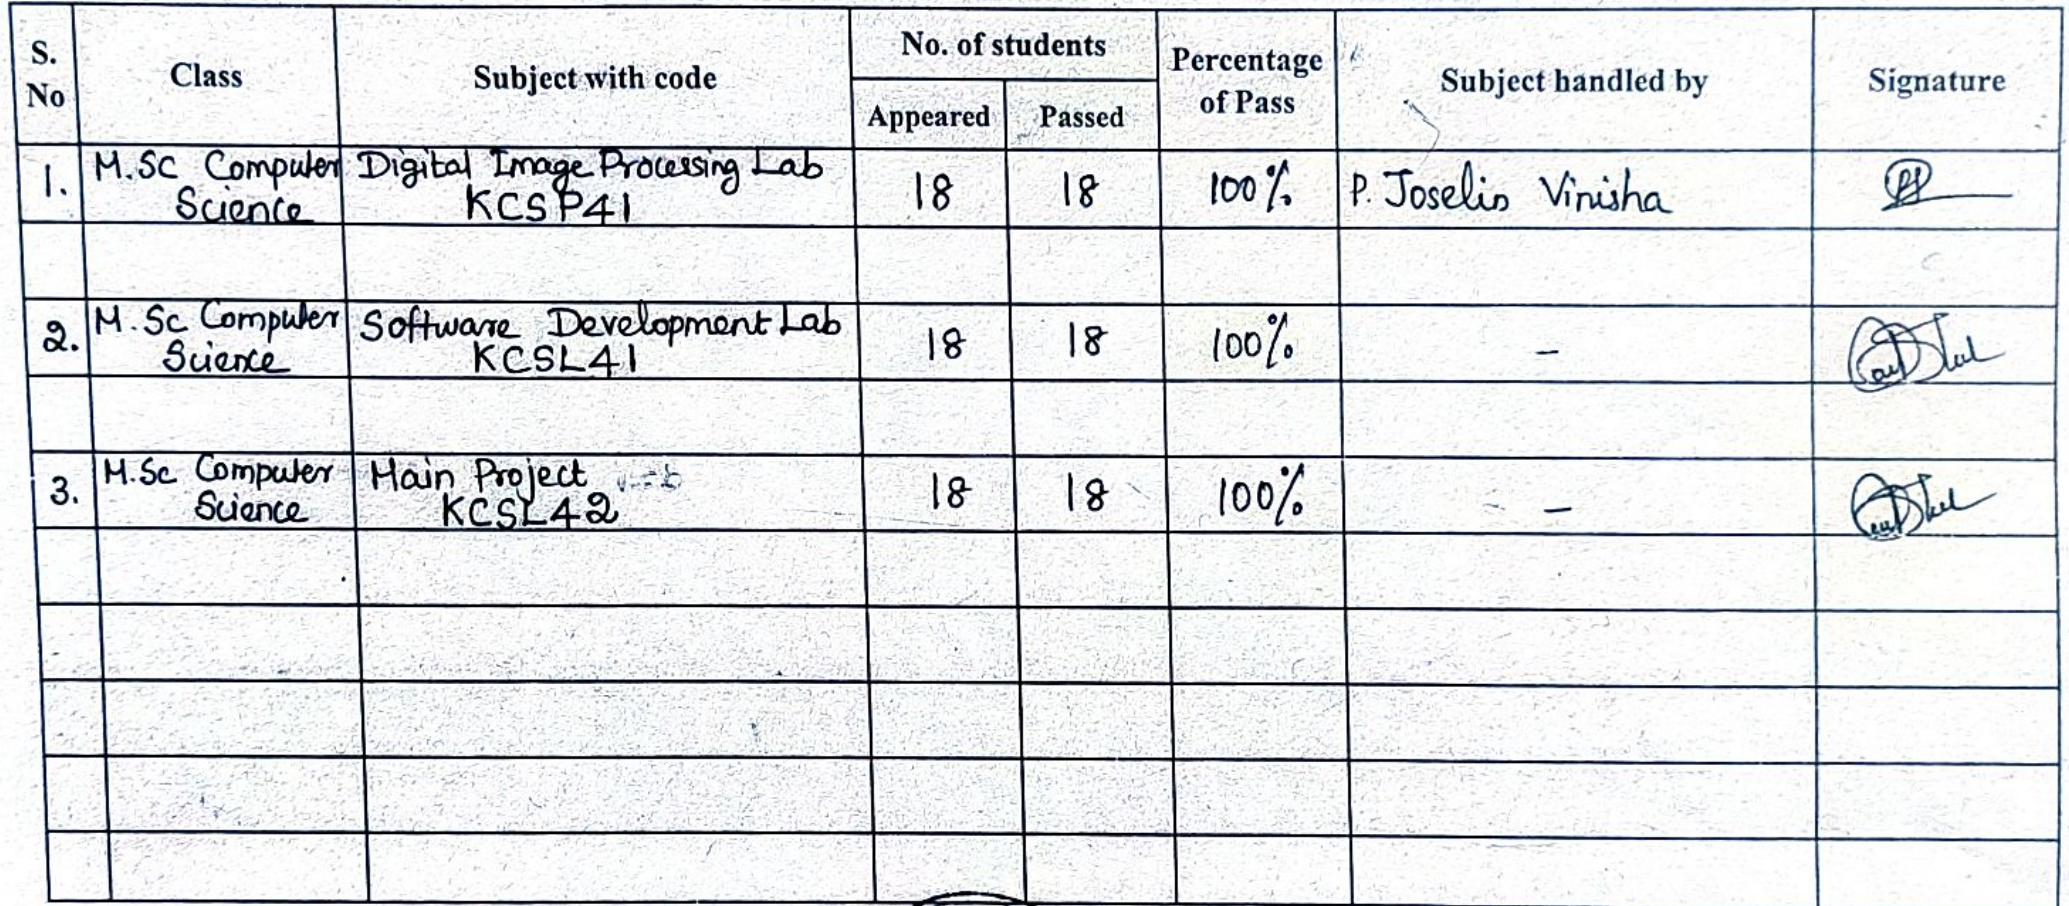 S. No Class Subject with code No. of students Percentage of Pass Subject handled by Signature
Appeared Passed
1. M.Sc Computer Science Digital Image Processing Lab KCSP41 18 18 100% P. Joselin Vinisha
2. M.Sc Computer Science Software Development Lab KCSL41 18 18 100% –
3. M.Sc Computer Science Main Project KCSL42 18 18 100% –